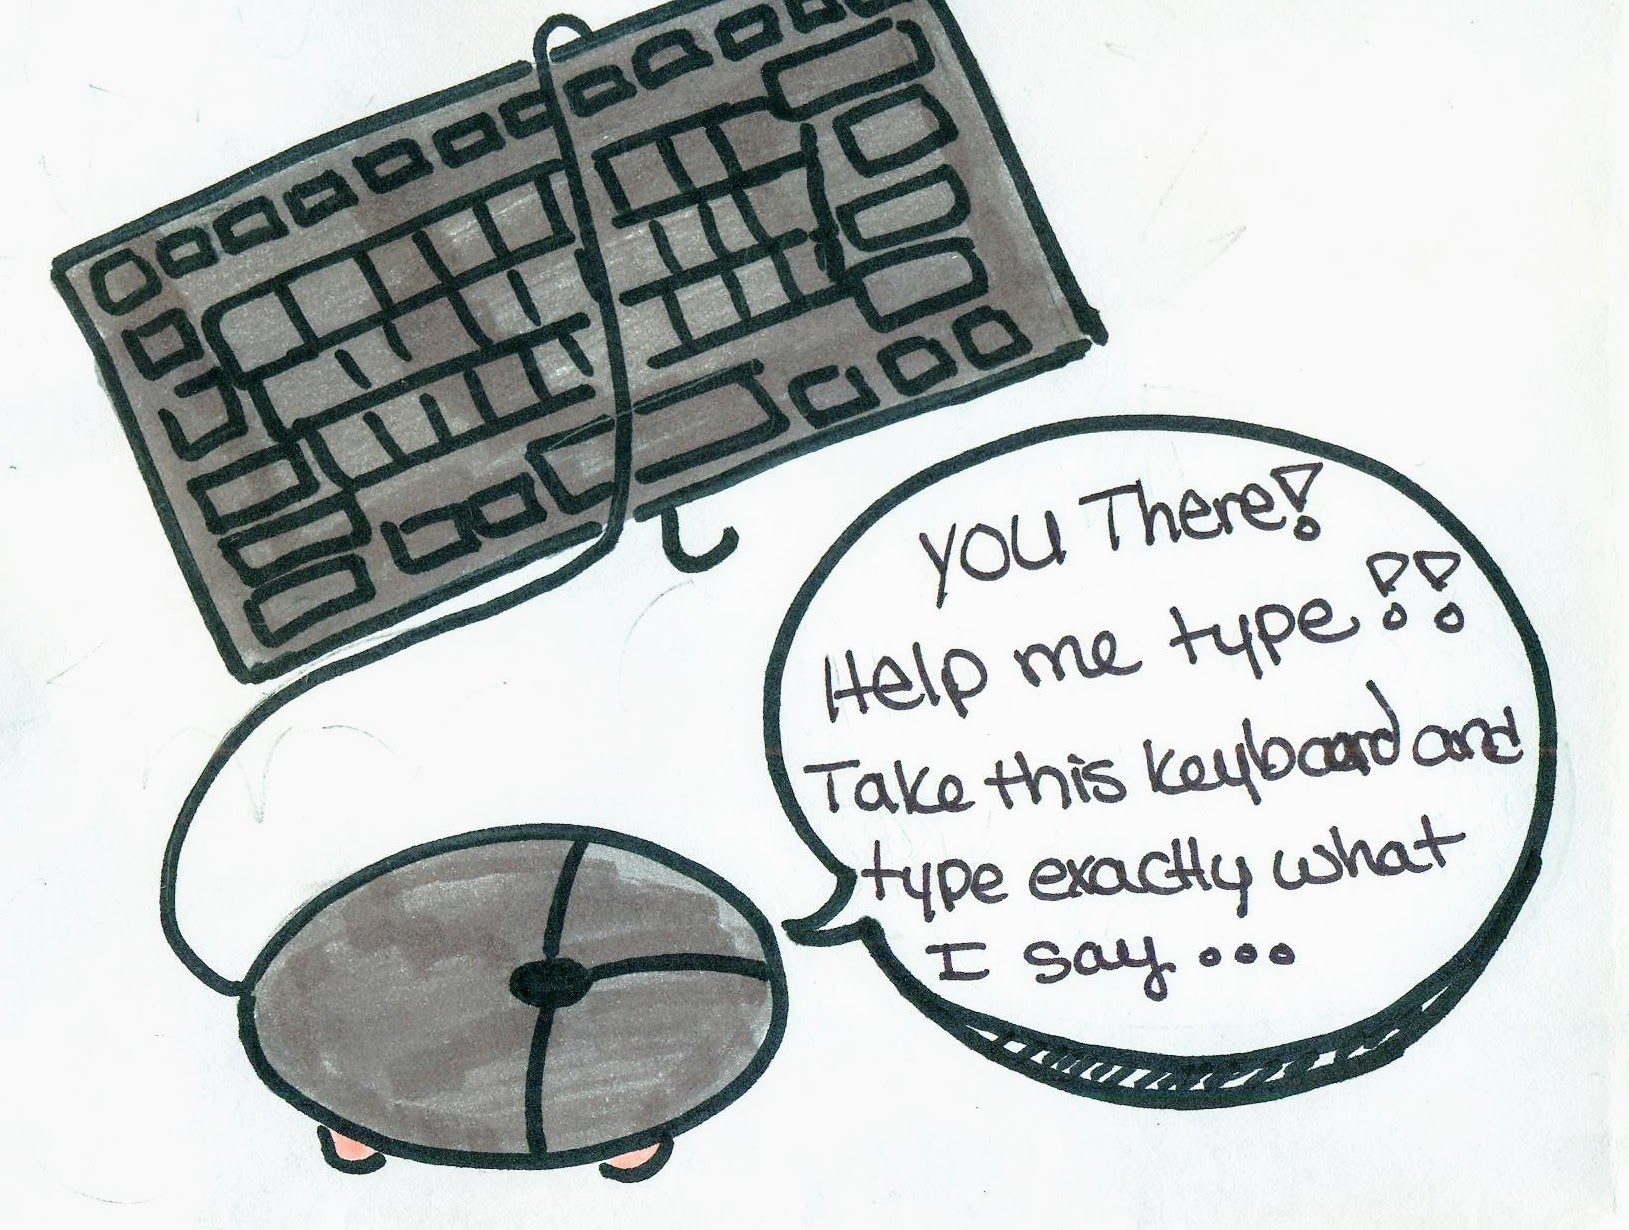 YOU There!
Help me type!!
Take this keyboard and
type exactly what
I say...